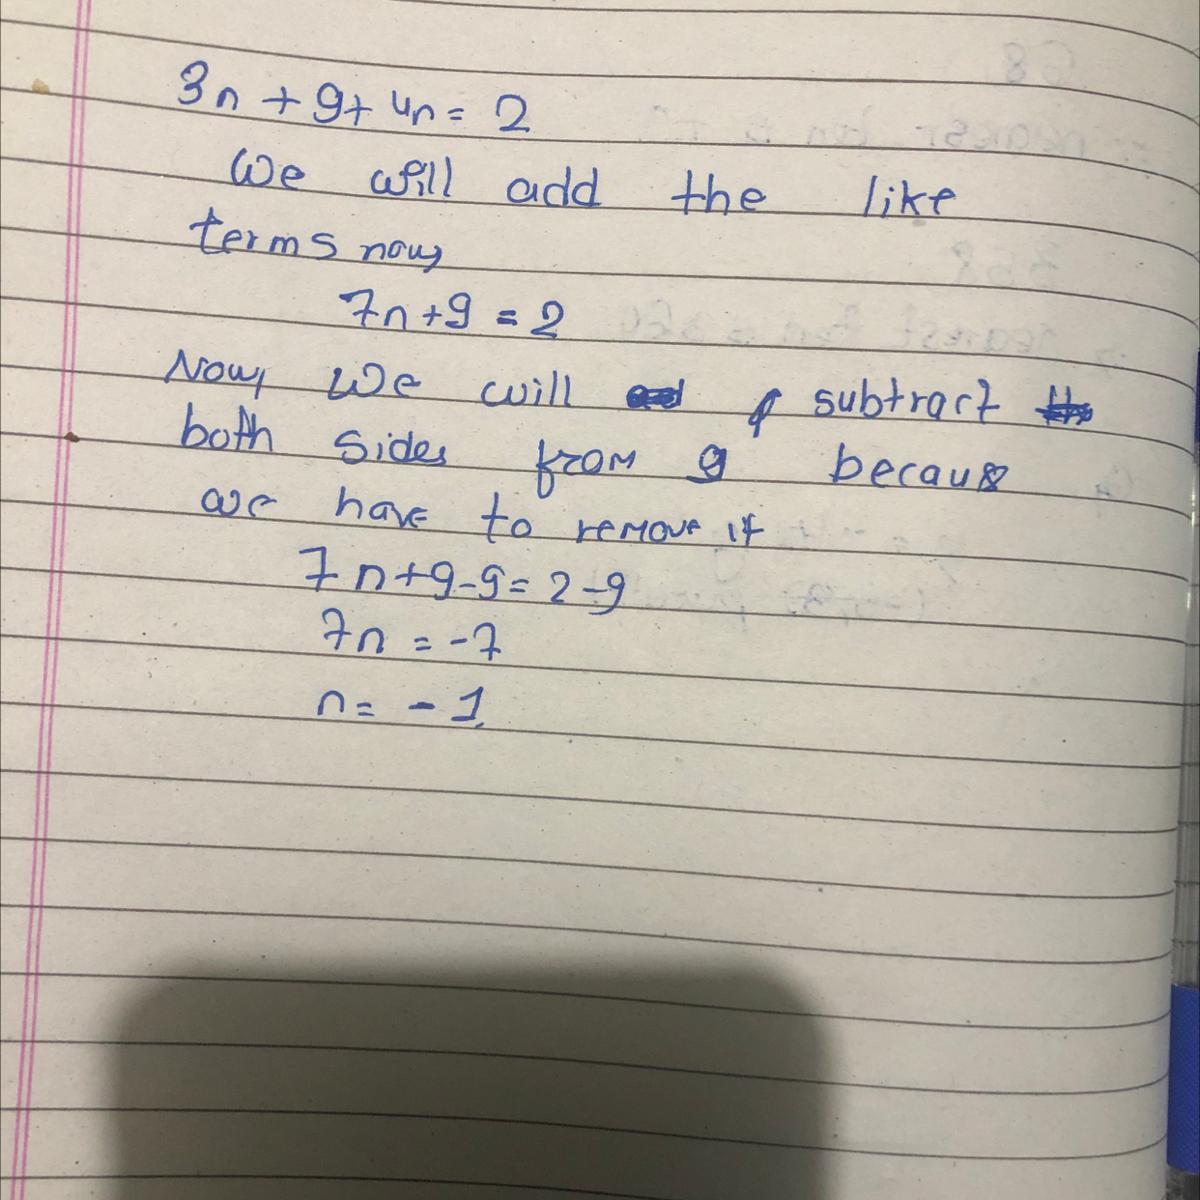 3n + 9 + 4n = 2
We will add the like
terms now
7n + 9 = 2
Now, we will subtract
both sides from 9 becaus
we have to remove it
7n + 9 - 9 = 2 - 9
7n = -7
n = -1